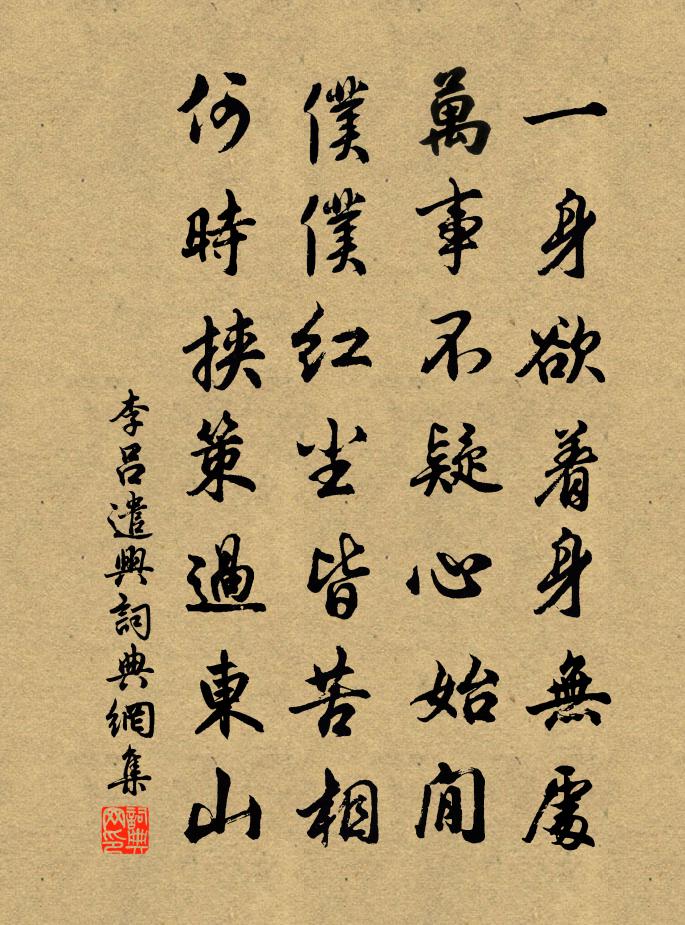 一身欲着身無處
萬事不疑心始閒
僕僕紅塵皆苦相
何時挾策過東山
李呂遣興詞典網集
詞典網印